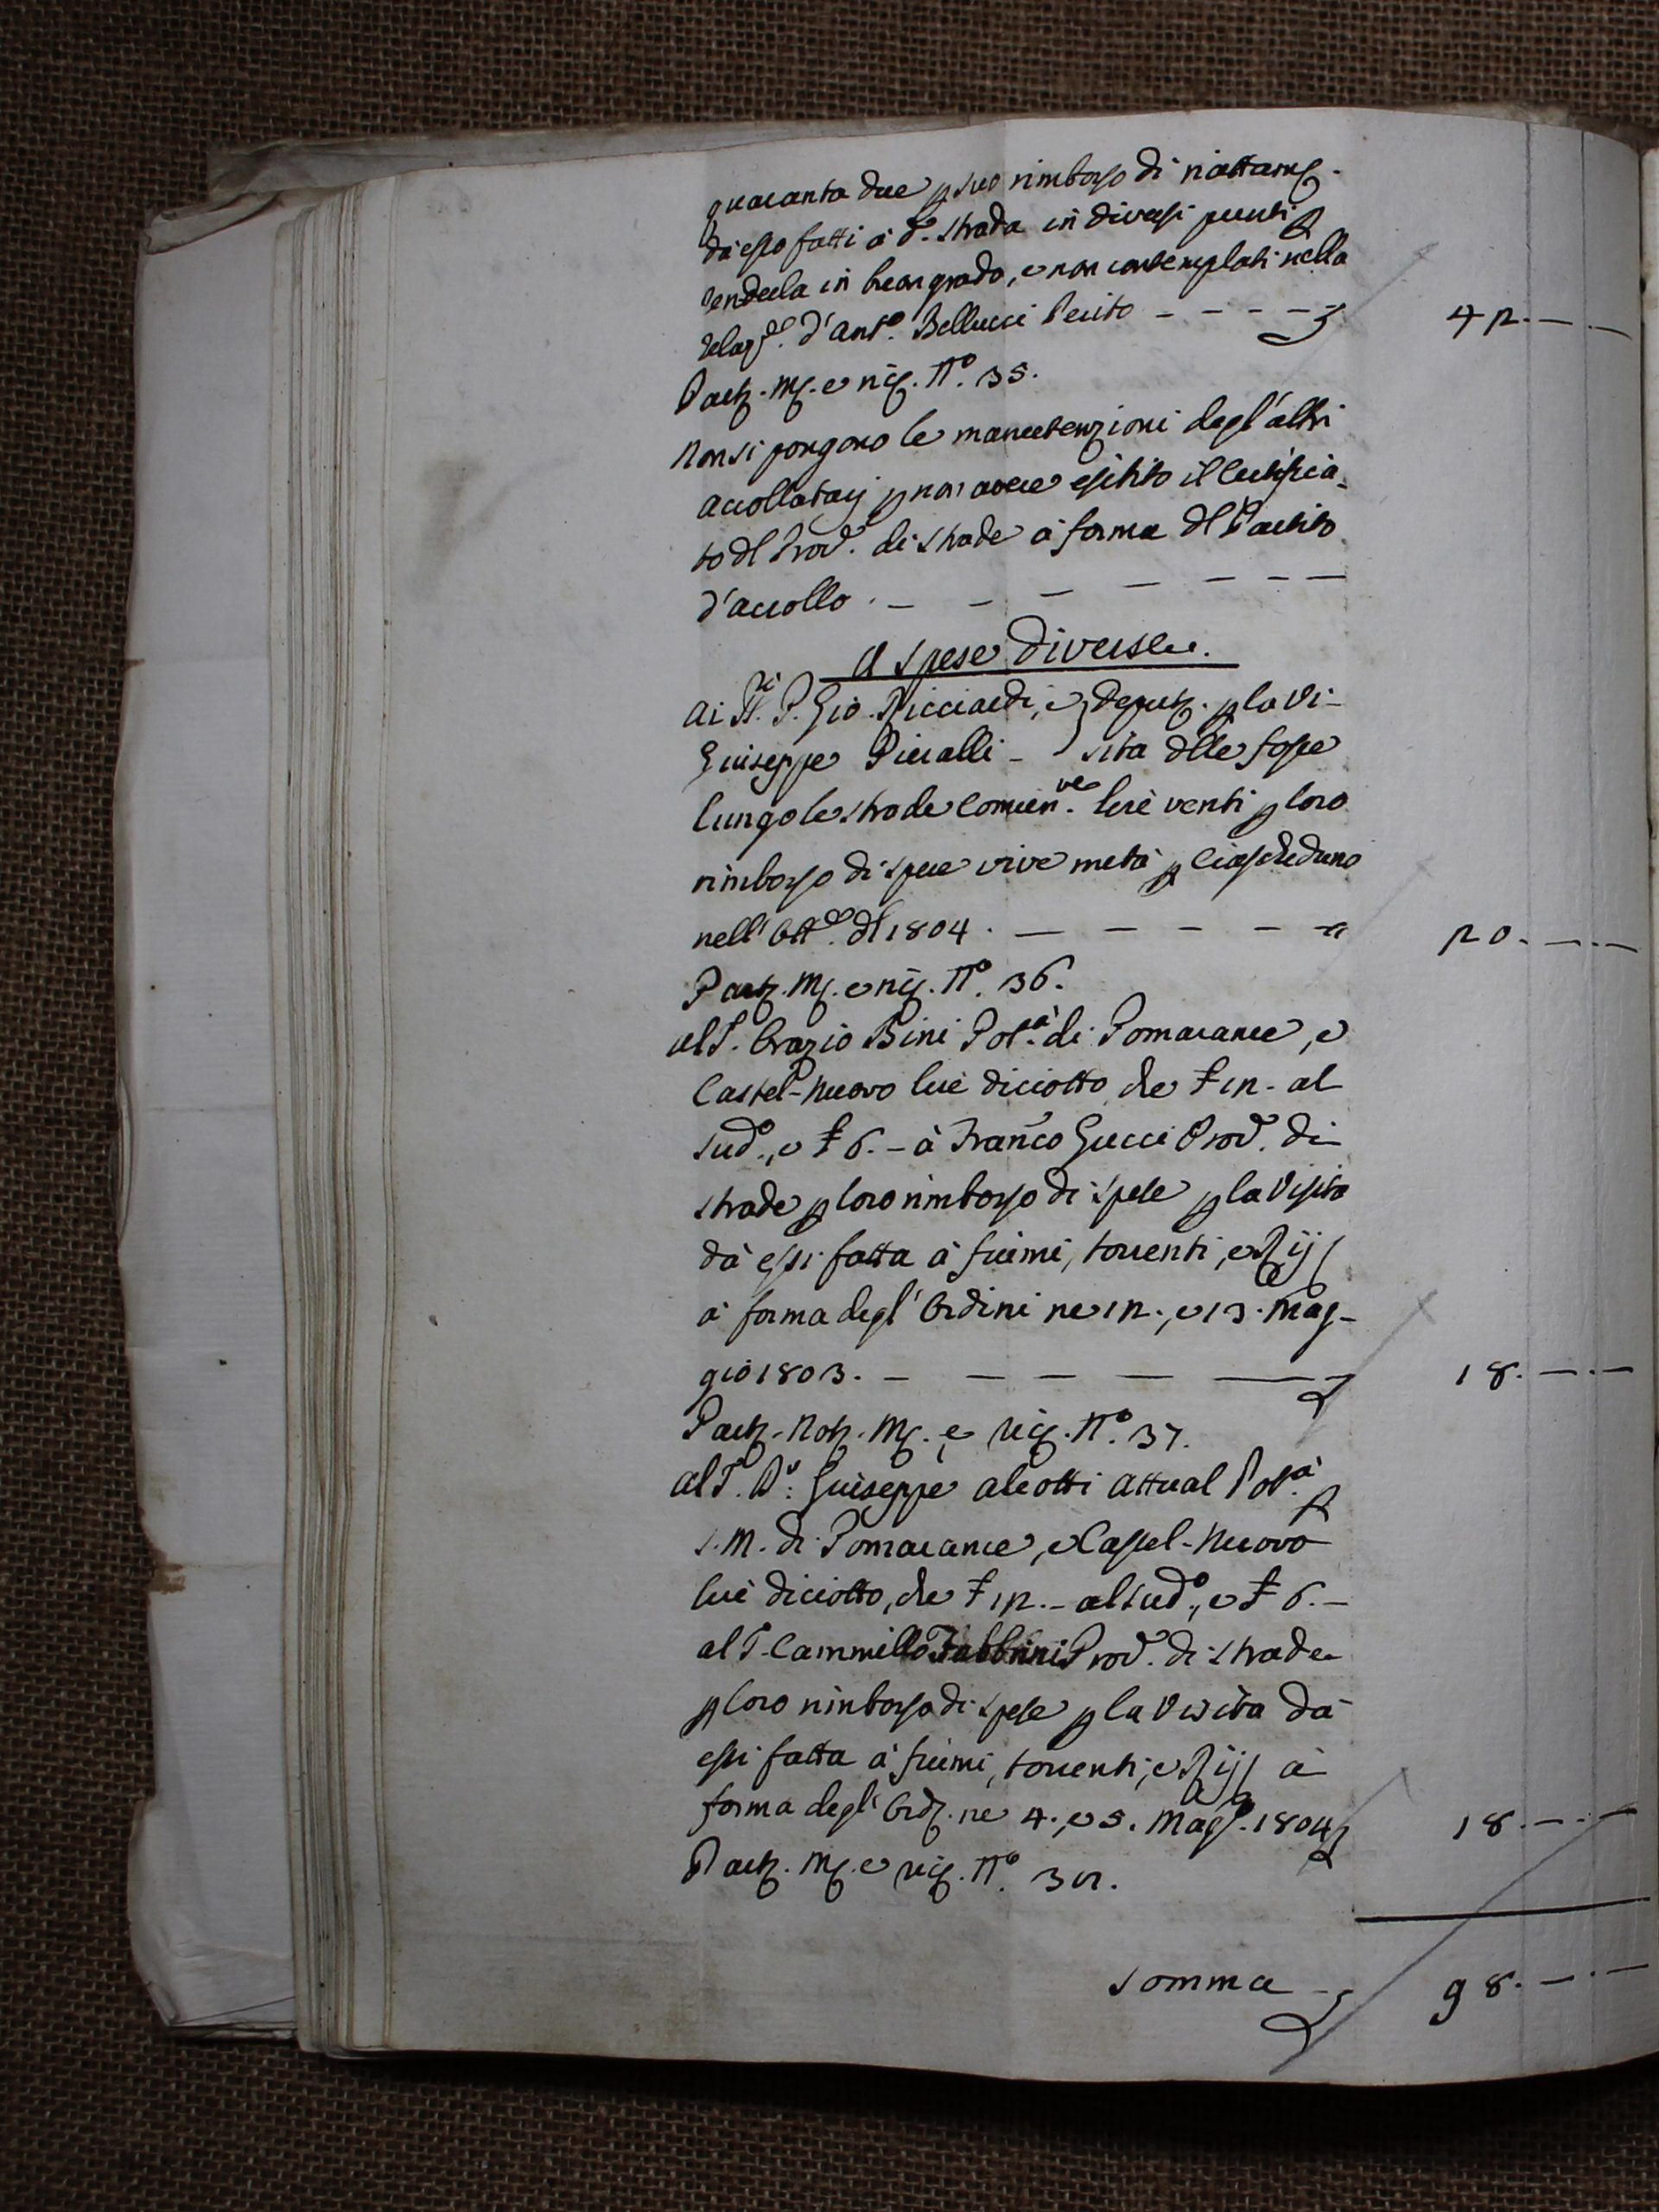 quaranta due p suo rimborso di riattam.
da esso fatti a d.ª strada in diversi punti p
renderla in buon grado, e non contemplati nella
relaz.e d'Ant.o Bellucci Perito - - - - 42. — . —
Part. M. e ric. N.o 35.
Non si pongono le manutenzioni degl'altri
accollatarj p non avere esibito il Certificia-
to dl Prov. di strade a forma dl Partito
d'accollo . — — — — — — —
A spese diverse.
Ai SS.ri P. Gio. Ricciardi, e } Deput. p la Vi-
Giuseppe Pieralli - } sita dlle fosse
lungo le strade Comun.ve lire venti p loro
rimborso di spese vive metà p ciascheduno
nell'Ott.e dl 1804 . — — — — — 20. — . —
Part. M. e ric. N.o 36.
Al S. Orazio Bini Pot.à di Pomarance, e
Castel-Nuovo lire diciotto, che £ 12 - al
sud.o, e £ 6. - à Fran.co Gucci Prov. di
strade p loro rimborso di spese p la Visita
dà essi fatta à fiumi, torrenti, e Rij
à forma degl'Ordini ne 12., e 13. Mag-
gio 1803. — — — — — 18. — . —
Part. Not. M. e ric. N.o 37.
Al S. D.r Giuseppe Aleotti attual Pot.à p
S. M. di Pomarance, e Castel-Nuovo
lire diciotto, che £ 12. - al sud.o, e £ 6. -
al S. Cammillo Fabbrini Prov. di strade
p loro rimborso di spese p la Visita dà
essi fatta à fiumi, torrenti, e Rij à
forma degl'Ord. ne 4., e 5. Magg.o 1804 18. — . —
Part. M. e ric. N.o 38.
Somma - 98. — . —